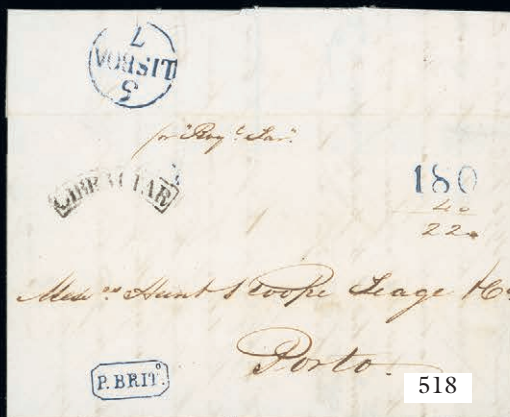 7
LISBOA
5
pr "Roy.l Tar"
GIBRALTAR
180
40
220
Mess.rs Hunt Roope Teage & Co
Porto.
P.BRIT.o
518